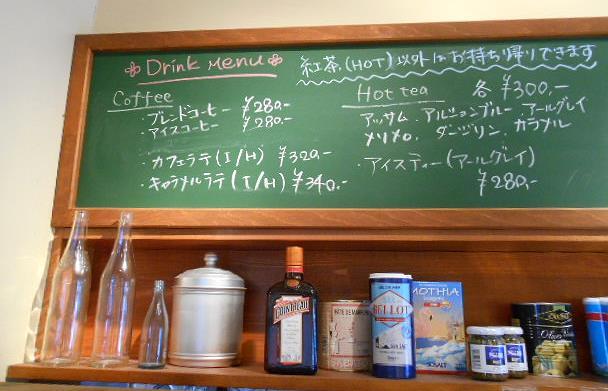 Drink Menu
紅茶(HOT)以外はお持ち帰りできます
Coffee
・ブレンドコーヒー ¥280.-
・アイスコーヒー ¥280.-
・カフェラテ(I/H) ¥320.-
・キャラメルラテ(I/H) ¥340.-
Hot tea 各 ¥300.-
アッサム. アルションブルー. アールグレイ
ダージリン. カラメル
・アイスティー(アールグレイ)
¥280.-
COINTREAU
BELLOT
MOTHIA
SALT